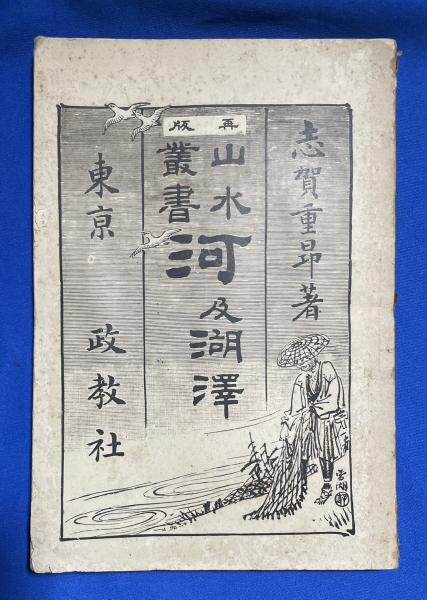 志賀重昂著
再版
山水
叢書
河及湖澤
東京 政教社